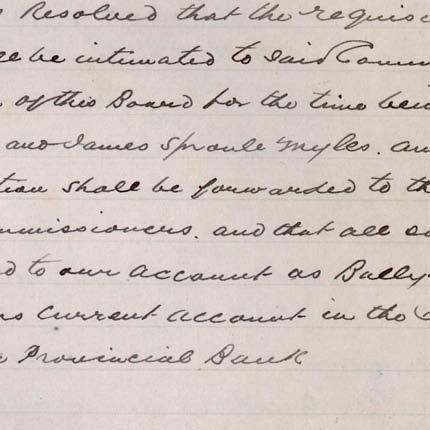 Resolved that the requis
be intimated to said Comm
of this Board for the time bein
and James Sproule Myles. an
tion shall be forwarded to th
mmissioners. and that all s
d to our account as Bally
Current account in the
Provincial Bank